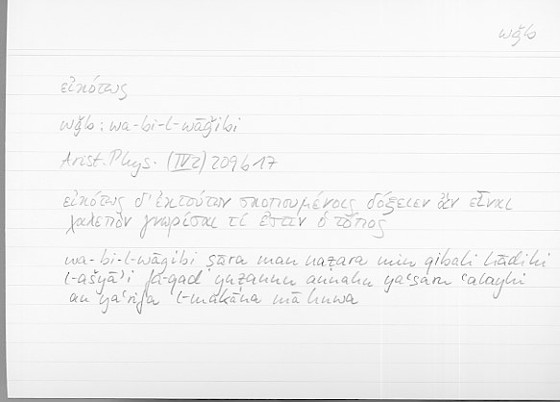 wǧb
εἰκότως
wǧb: wa-bi-l-wāǧibi
Arist. Phys. (IV2) 209b17
εἰκότως δ' ἐκ τούτων σκοπουμένοις δόξειεν ἂν εἶναι
χαλεπὸν γνωρίσαι τί ἐστιν ὁ τόπος
wa-bi-l-wāǧibi ṣāra man naẓara min qibali hāḏihi
l-ašyāʾi fa-qad yuẓannu annahu yaʿsuru ʿalayhi
an yaʿrifa l-makāna mā huwa